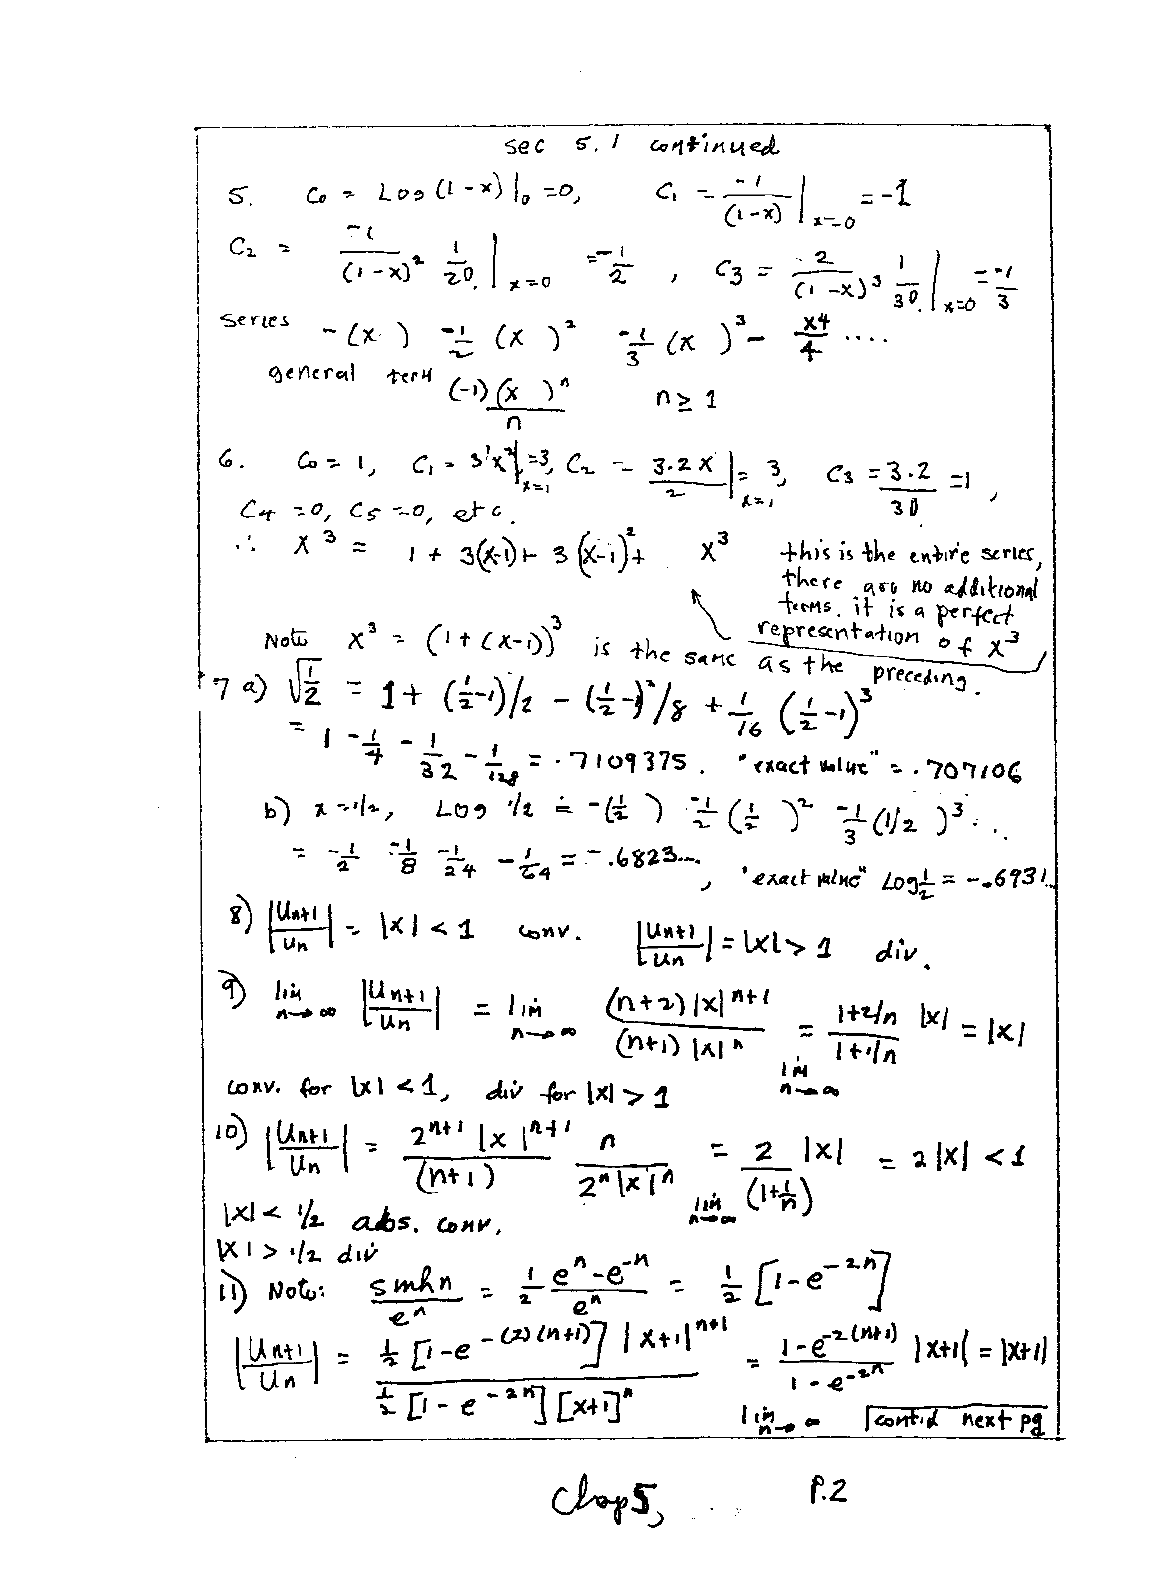 sec 5.1 continued
5. C₀ = Log (1-x)|₀ = 0, C₁ = -1/(1-x) |ₓ₌₀ = -1
C₂ = -1/(1-x)² 1/2! |ₓ₌₀ = -1/2 , C₃ = -2/(1-x)³ 1/3! |ₓ₌₀ = -1/3
series -(x ) -1/2 (x )² -1/3 (x )³ - x4/4 ....
general term (-1)(x )ⁿ/n n ≥ 1
6. C₀ = 1, C₁ = 3x²|ₓ₌₁ = 3, C₂ = 3·2x/2 |ₓ₌₁ = 3, C₃ = 3·2/3! = 1,
C₄ = 0, C₅ = 0, etc.
∴ x³ = 1 + 3(x-1) + 3(x-1)² + x³
this is the entire series,
there are no additional
terms. it is a perfect
representation of x³
Note x³ = (1 + (x-1))³ is the same as the preceding.
7 a) √(1/2) = 1 + (1/2-1)/2 - (1/2-1)²/8 + 1/16 (1/2-1)³
= 1 - 1/4 - 1/32 - 1/128 = .7109375. "exact value" = .707106
b) x = 1/2, Log 1/2 ≐ -(1/2 ) -1/2 (1/2 )² -1/3 (1/2 )³ ...
= -1/2 -1/8 -1/24 - 1/64 = -.6823..., "exact value" Log 1/2 = -.6931..
8) |Uₙ₊₁/Uₙ| = |x| < 1 conv. |Uₙ₊₁/Uₙ| = |x| > 1 div.
9) lim n→∞ |Uₙ₊₁/Uₙ| = lim n→∞ (n+2)|x|ⁿ⁺¹/(n+1)|x|ⁿ = lim n→∞ (1+2/n)/(1+1/n) |x| = |x|
conv. for |x| < 1, div for |x| > 1
10) |Uₙ₊₁/Uₙ| = 2ⁿ⁺¹|x|ⁿ⁺¹/(n+1) n/2ⁿ|x|ⁿ = lim n→∞ 2/(1+1/n) |x| = 2|x| < 1
|x| < 1/2 abs. conv.
|x| > 1/2 div
11) Note: sinh n/eⁿ = 1/2 (eⁿ-e⁻ⁿ)/eⁿ = 1/2 [1-e⁻²ⁿ]
|Uₙ₊₁/Uₙ| = 1/2 [1-e^-(2)(n+1)] |x+1|ⁿ⁺¹ / 1/2 [1-e⁻²ⁿ] [x+1]ⁿ = lim n→∞ (1-e^-2(n+1))/(1-e⁻²ⁿ) |x+1| = |x+1|
cont'd next pg
Chap 5, P.2